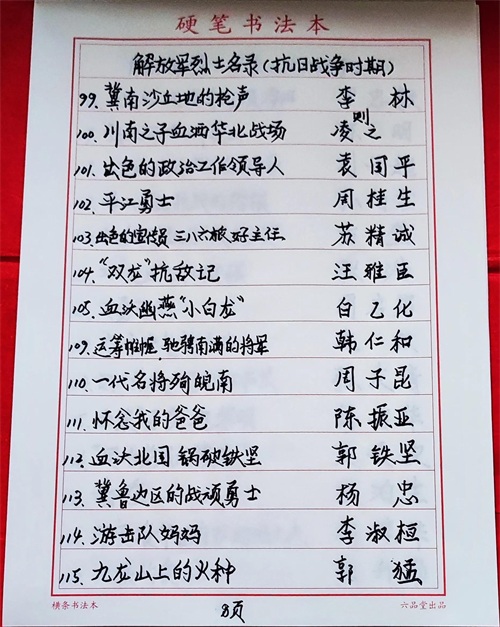 硬笔书法本
解放军烈士名录(抗日战争时期)
99.冀南沙丘地的枪声 李林
100.川南之子血洒华北战场 凌则之
101.出色的政治工作领导人 袁国平
102.平江勇士 周桂生
103.出色的宣传员 三八六旅好主任 苏精诚
104.“双龙”抗敌记 汪雅臣
105.血沃幽燕“小白龙” 白乙化
109.运筹帷幄,驰骋南满的将军 韩仁和
110.一代名将殉皖南 周子昆
111.怀念我的爸爸 陈振亚
112.血沃北国 锅破铁坚 郭铁坚
113.冀鲁边区的战顽勇士 杨忠
114.游击队妈妈 李淑桓
115.九龙山上的火种 郭猛
横条书法本 六品堂出品
8页